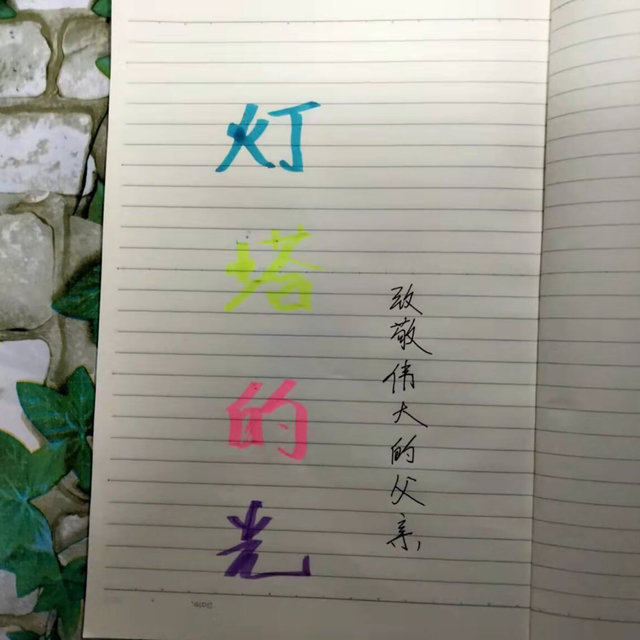 灯塔的光
致敬伟大的父亲
Date.